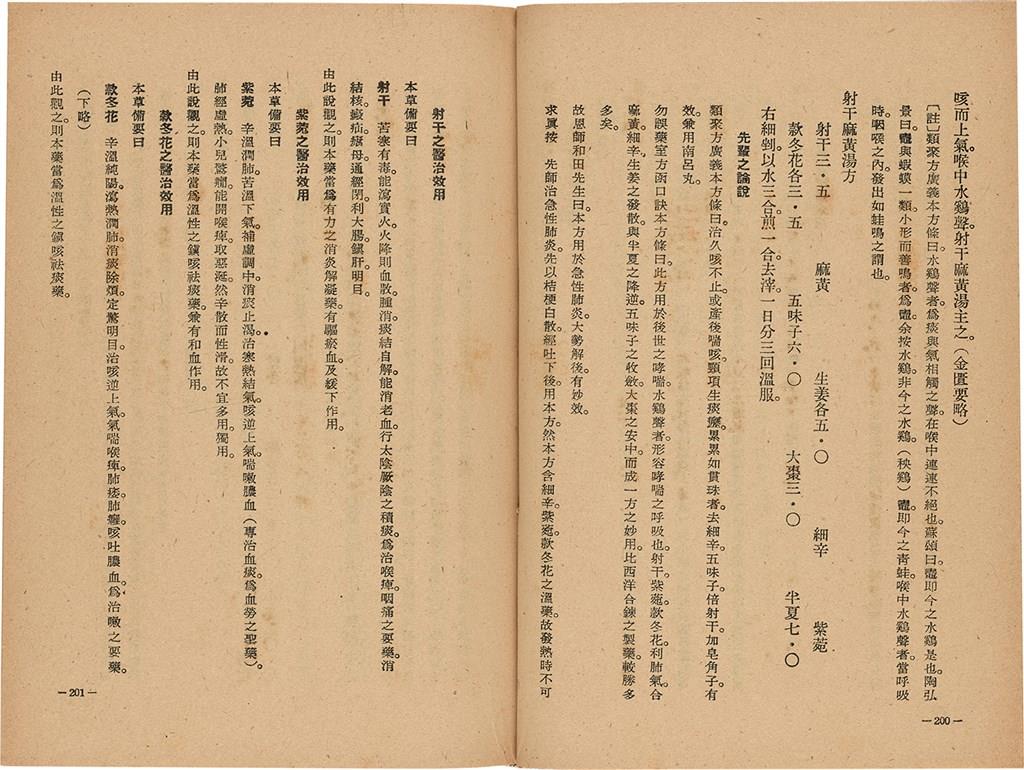 咳而上氣。喉中水鷄聲。射干麻黃湯主之。(金匱要略)
〔註〕類聚方廣義本方條曰。水鷄聲者。爲痰與氣相觸之聲。在喉中連連不絕也。蘇頌曰。鼃即今之水鷄是也。陶弘
景曰。鼃與蝦蟆一類。小形而善鳴者爲鼃。余按。水鷄。非今之水鷄。(秧鷄)鼃。即今之靑蛙。喉中水鷄聲者。當呼吸
時。咽喉之內。發出如蛙鳴之謂也。
射干麻黃湯方
射干三・五 麻黃 生姜各五・〇 細辛 紫菀
款冬花各三・五 五味子六・〇 大棗三・〇 半夏七・〇
右細剉。以水三合。煎一合。去滓。一日分三回溫服。
先輩之論說
類聚方廣義本方條曰。治久咳不止。或產後喘咳。頸項生痰癧。累累如貫珠者。去細辛五味子。倍射干。加皂角子。有
效。兼用南呂丸。
勿誤藥室方函口訣本方條曰。此方用於後世之哮喘。水鷄聲者。形容哮喘之呼吸也。射干紫菀款冬花。利肺氣。合
麻黃細辛生姜之發散。與半夏之降逆。五味子之收斂。大棗之安中。而成一方之妙用。比西洋合鍊之製藥。較勝多
多矣。
故恩師和田先生曰。本方用於急性肺炎。大勢解後。有妙效。
求眞按 先師治急性肺炎。先以桔梗白散。經吐下後。用本方。然本方含細辛紫菀款冬花之溫藥。故發熱時不可
—200—
射干之醫治效用
本草備要曰
射干 苦寒有毒。能瀉實火。火降則血散腫消。痰結自解。能消老血。行太陰厥陰之積痰。爲治喉痺咽痛之要藥。消
結核瘕疝。瘧母。通經閉。利大腸。鎮肝明目。
由此說觀之。則本藥當爲有力之消炎解凝藥。有驅瘀血及緩下作用。
紫菀之醫治效用
本草備要曰
紫菀 辛溫潤肺。苦溫下氣。補虛調中。消痰止渴。治寒熱結氣。咳逆上氣。喘嗽膿血。(專治血痰。爲血勞之聖藥)。
肺經虛熱。小兒驚癇。能開喉痺。取惡涎。然辛散而性滑。故不宜多用獨用。
由此說觀之。則本藥當爲溫性之鎮咳祛痰藥。兼有和血作用。
款冬花之醫治效用
本草備要曰
款冬花 辛溫純陽。瀉熱潤肺。消痰除煩。定驚明目。治咳逆上氣。氣喘喉痺。肺痿肺癰。咳吐膿血。爲治嗽之要藥。
(下略)
由此觀之。則本藥當爲溫性之鎮咳祛痰藥。
—201—